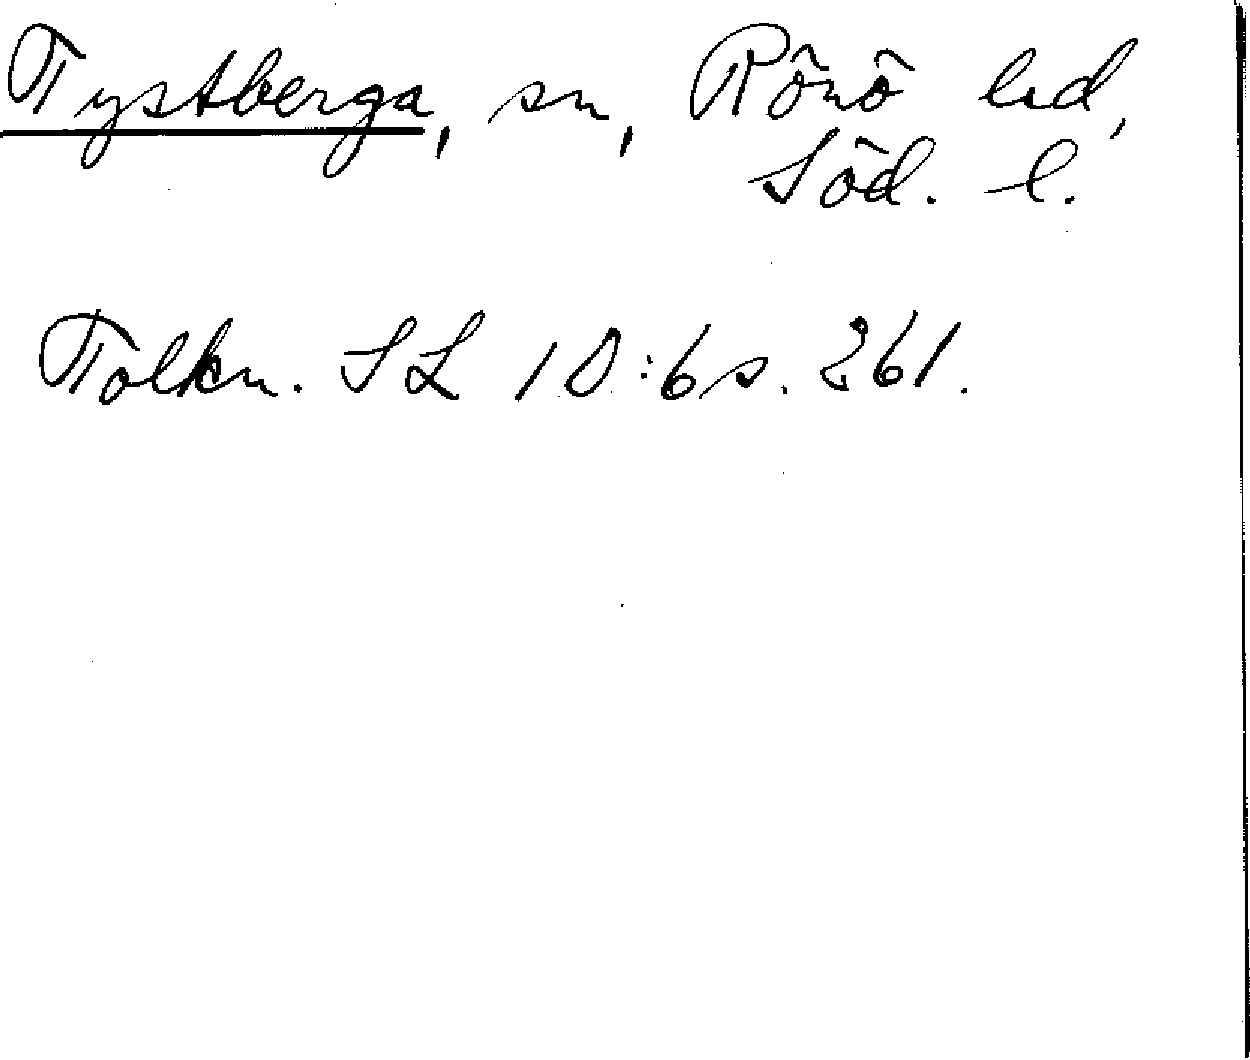 Tystberga, sn, Rönö hd,
Söd. l.
Tolkn. SL 10:6 s. 261.